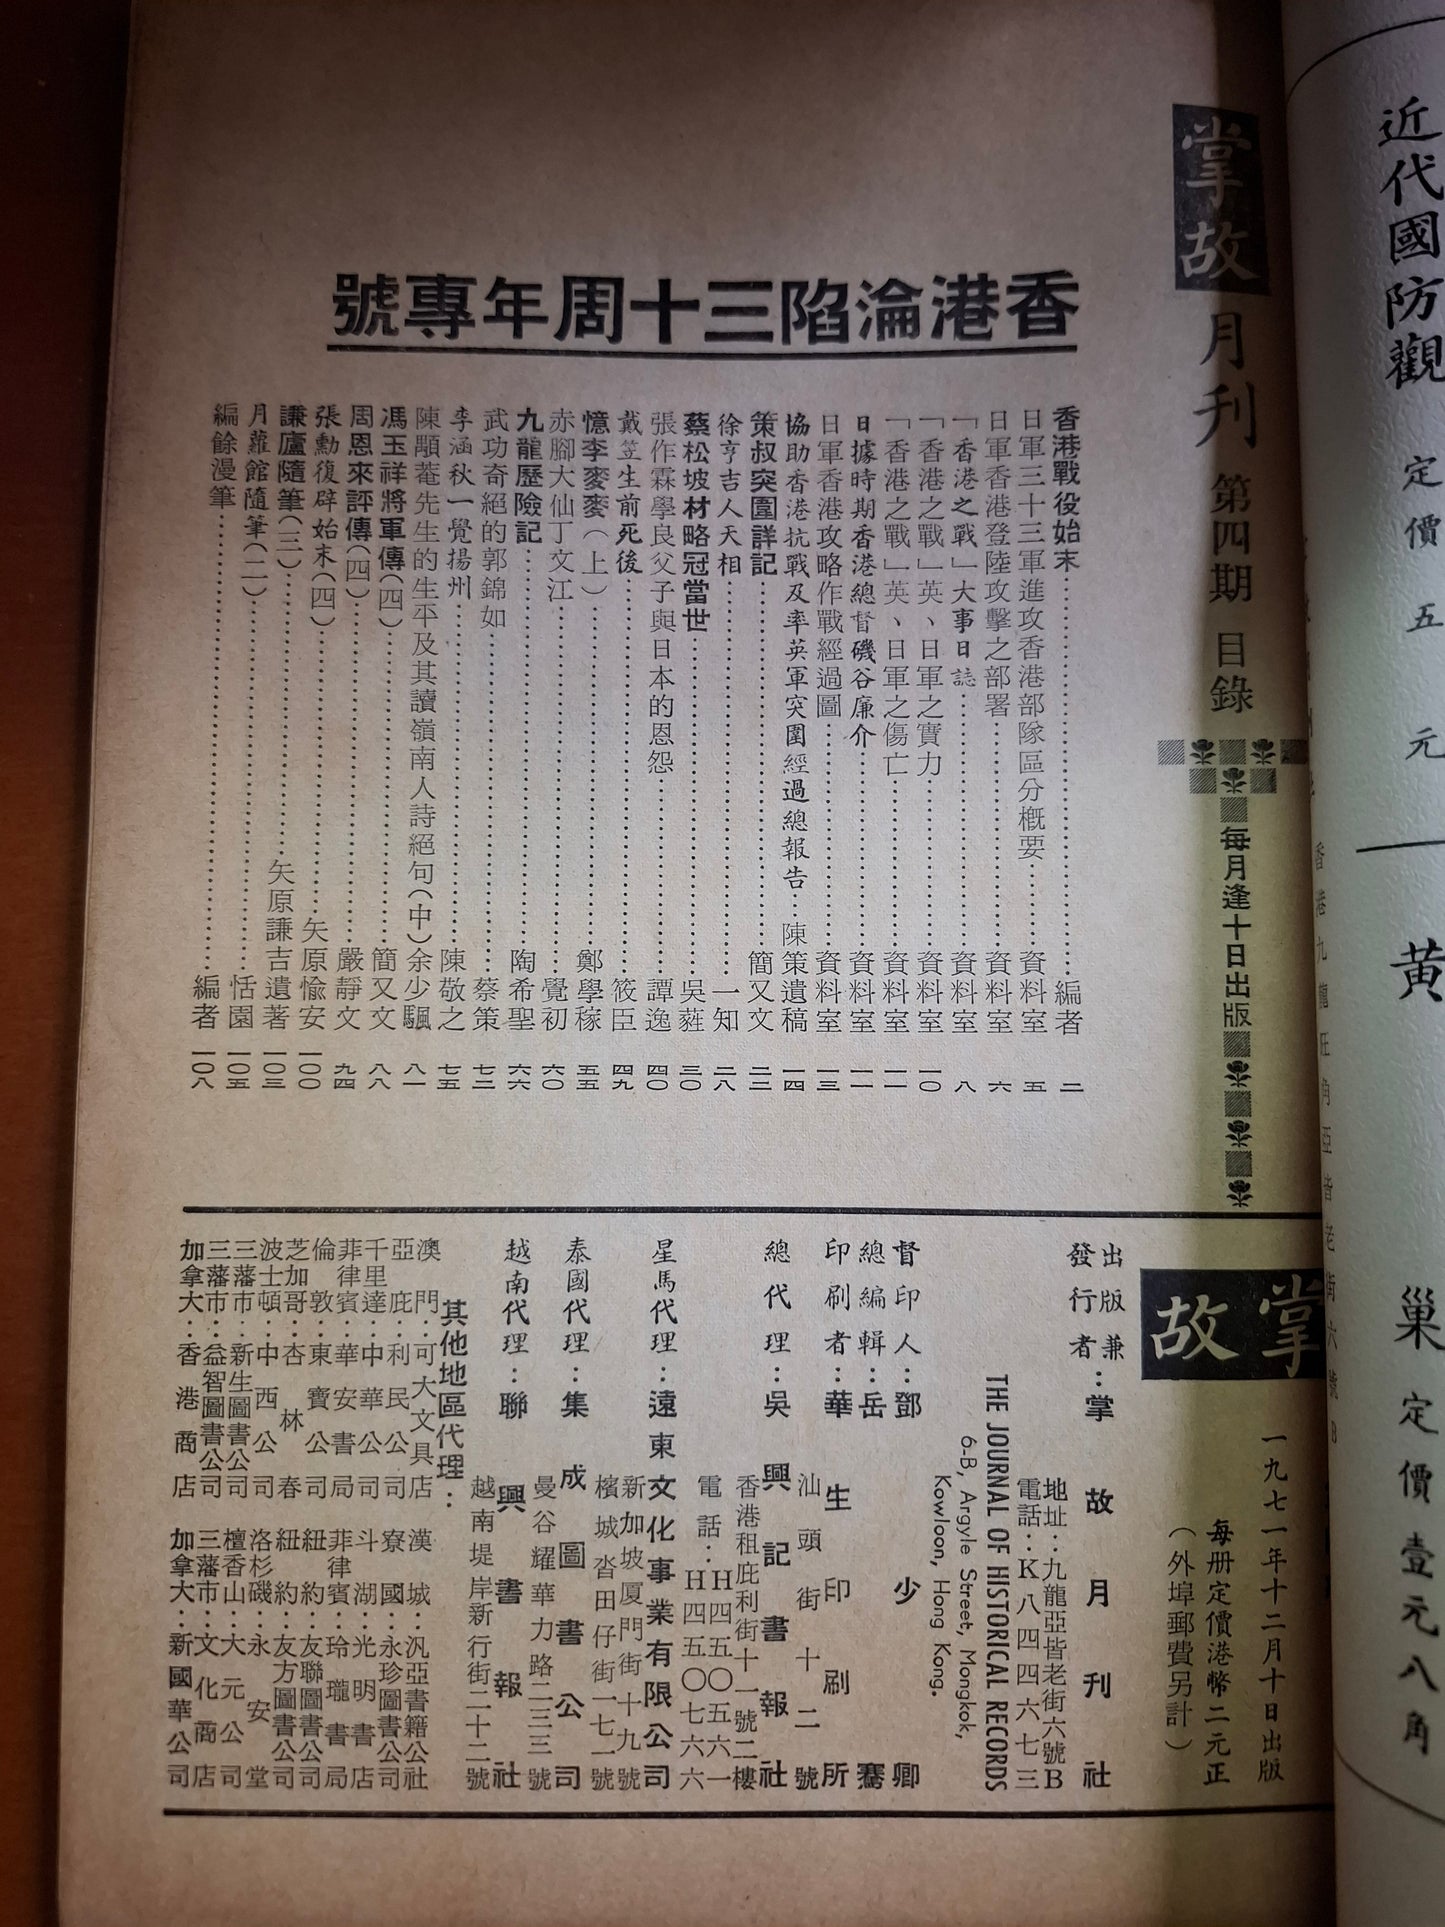 掌故月刊 第四期 目錄
每月逢十日出版
香港淪陷三十周年專號
香港戰役始末……編者 二
日軍三十三軍進攻香港部隊區分概要……資料室 五
日軍香港登陸攻擊之部署……資料室 六
「香港之戰」大事日誌……資料室 八
「香港之戰」英、日軍之實力……資料室 一〇
「香港之戰」英、日軍之傷亡……資料室 一一
日據時期香港總督磯谷廉介……資料室 一一
日軍香港攻略作戰經過圖……資料室 一三
協助香港抗戰及率英軍突圍經過總報告……陳策遺稿 一四
策叔突圍詳記……簡又文 二二
徐亨吉人天相……一知 二八
蔡松坡材略冠當世……吳蕤 三〇
張作霖學良父子與日本的恩怨……譚逸 四〇
戴笠生前死後……筱臣 四九
憶李麥麥(上)……鄭學稼 五五
赤腳大仙丁文江……覺初 六〇
九龍歷險記……陶希聖 六六
武功奇絕的郭錦如……蔡策 七二
李涵秋一覺揚州……陳敬之 七五
陳顒菴先生的生平及其讀嶺南人詩絕句(中)余少颿 八一
馮玉祥將軍傳(四)……簡又文 八八
周恩來評傳(四)……嚴靜文 九四
張勳復辟始末(四)……矢原愉安 一〇〇
謙廬隨筆(三)……矢原謙吉遺著 一〇三
月蘿館隨筆(二)……恬園 一〇五
編餘漫筆……編者 一〇八
掌故
一九七一年十二月十日出版
每册定價港幣二元正
(外埠郵費另計)
出版兼發行者:掌故月刊社
地址:九龍亞皆老街六號B
電話:K八四四六七三
THE JOURNAL OF HISTORICAL RECORDS
6-B, Argyle Street, Mongkok,
Kowloon, Hong Kong.
督印人:鄧少卿
總編輯:岳騫
印刷者:華生印刷所
汕頭街十二號
總代理:吳興記書報社
香港租庇利街十一號二樓
電話:H四五〇五六一
H四五〇七六六
星馬代理:遠東文化事業有限公司
新加坡厦門街十九號
檳城沓田仔街一七一號
泰國代理:集成圖書公司
曼谷耀華力路二三三號
越南代理:聯興書報社
越南堤岸新行街二十二號
其他地區代理:
澳門:可大文具店
亞庇:利民公司
千里達:中華公司
菲律賓:華安書局
倫敦:東寶公司
芝加哥:杏林春
波士頓:中西公司
三藩市:新生圖書公司
三藩市:益智圖書公司
加拿大:香港商店
漢城:汎亞書籍公社
寮國:永珍圖書公司
斗湖:光明書店
菲律賓:玲瓏書局
紐約:友聯圖書公司
紐約:友方圖書公司
洛杉磯:永安堂
檀香山:大元公司
三藩市:文化商店
加拿大:新國華公司
近代國防觀 定價五元
黄
巢 定價壹元八角
香港九龍旺角亞皆老街六號B